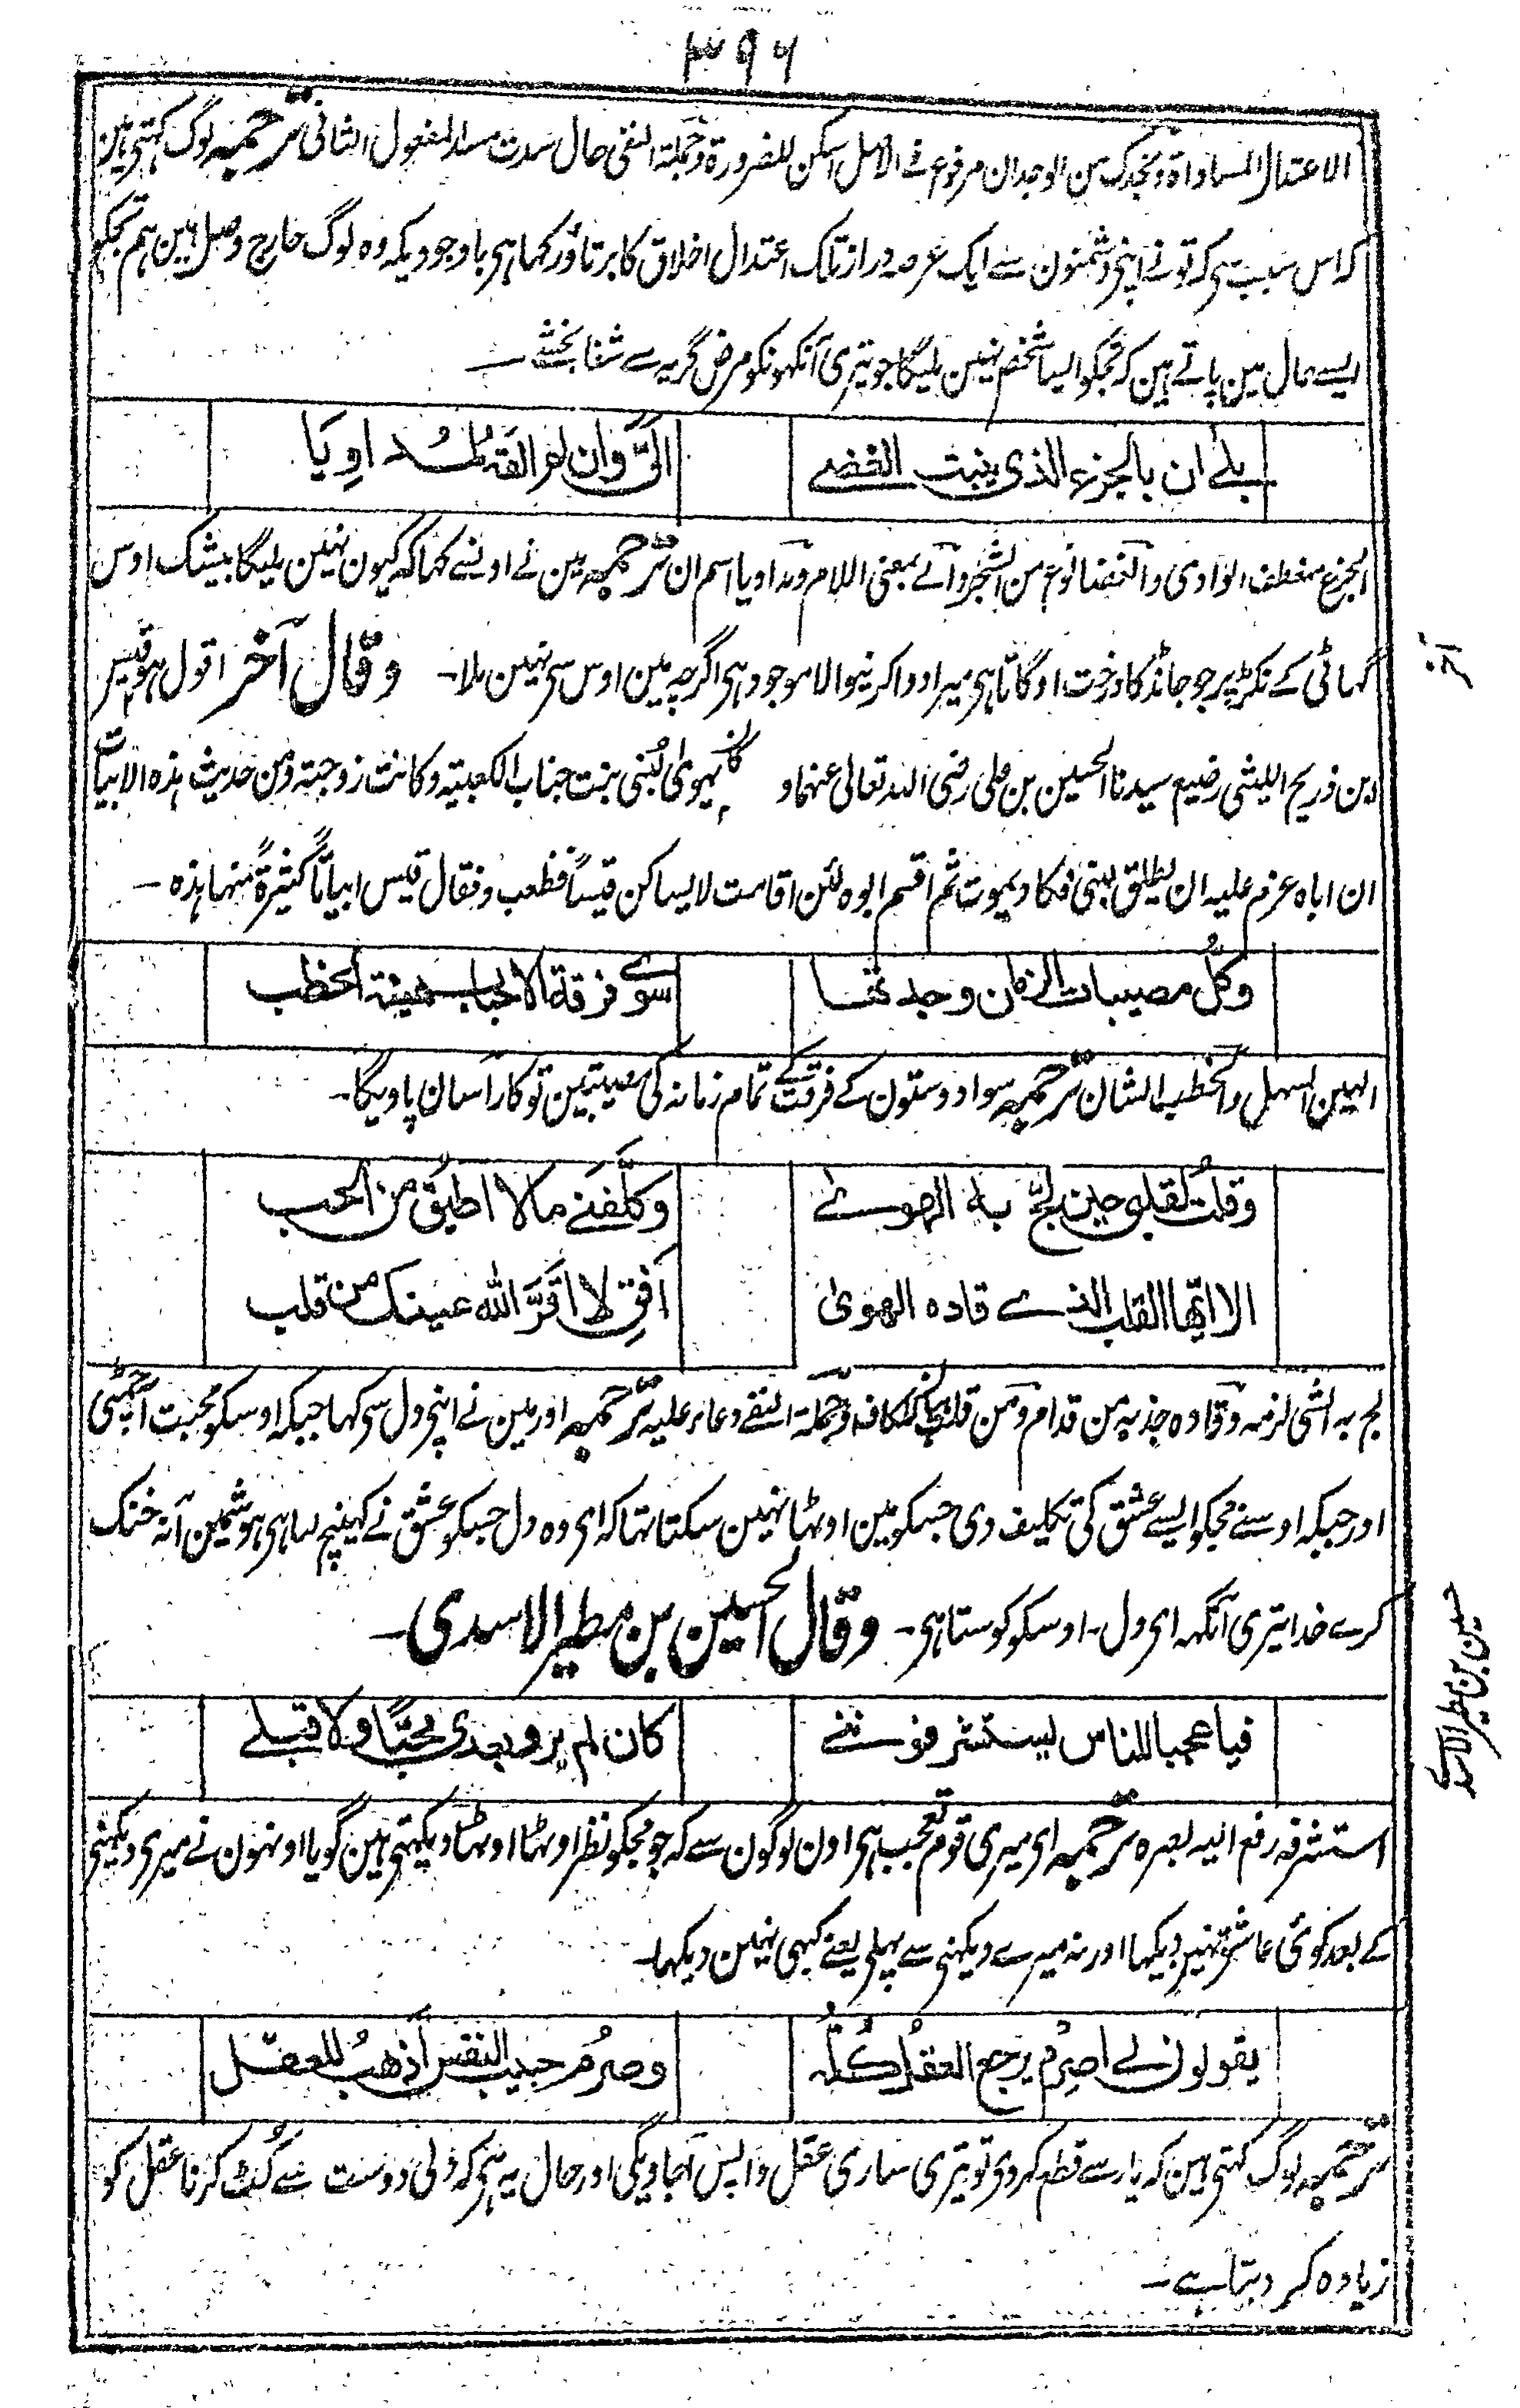 ۳۹۶
الاعتدال المساواة ونجدک من الوجدان مرفوع فے الاصل اسکن للضرورة وجملة النفی حال سدت مسد المفعول الثانی ترجمہ لوگ کہتی ہین
کہ اس سبب سی کہ تو نے اپنی دشمنون سے ایک عرصہ دراز تک اعتدال اخلاق کا برتاؤ رکھا ہی باوجودیکہ وہ لوگ خارج وصل ہین ہم تجکو
ایسے حال مین پاتے ہین کہ تجکو ایسا شخص نہین ملیگا جو تیری آنکھونکو مرض گریہ سے شفا بخشے ـ
بلے ان بالجزع الذی ینبت الغضے الیَّ وان لم القہ لمُداوِیَا
الجزع منعطف الوادی والغضا نوع من الشجر والے بمعنی اللام ومداویا اسم ان ترجمہ مین نے اونسے کہا کہ کیون نہین ملیگا بیشک اوس
گہاٹی کے نکڑ پر جو جانڈ کا درخت اوگاتا ہی میرا دوا کرنیوالا موجود ہی اگرچہ مین اوس سی نہین ملا ـ وقال آخر اقول ہو قیس
آخر
ابن ذریح اللیثی رضیع سیدنا الحسین بن علی رضی اللہ تعالی عنہما و کان یہویٰ لُبنی بنت حباب الکعبیة وکانت زوجتہ ومن حدیث ہذہ الابیات
ان اباہ عزم علیہ ان یطلق لبنی فکاد یموت ثم اقسم ابوہ لئن اقامت لا یساکن قیساً فظعب وفقال قیس ابیاتاً کثیرةً منہا ہذہ ـ
وکلُّ مصیبات الزمان وجدتُھا سوے فرقة الاحباب ھینة الخطب
الہین السہل والخطب الشان ترجمہ سواد دوستون کے فرقت کے تمام زمانہ کی مصیبتین تو کار آسان پاویگا ـ
وقلتُ لقلبی حین لجَّ بہ الھوےٰ وکلَّفَنے مالا اطیقُ من الحب
الا ایّھا القلب الذے قادہ الھویٰ اَفِقِ لا اَقَرَّ اللہ عینک من قلب
لج بہ الشی لزمہ وقادہ جذبہ من قدام ومن قلب وجملة النفے دعاء علیہ ترجمہ اور مین نے اپنی دل سی کہا جبکہ اوسکو محبت آ چمٹی
اور جبکہ اوسنے مجکو ایسے عشق کی تکلیف دی جسکو مین اوٹھا نہین سکتا تہا کہ ای وہ دل جسکو عشق نے کہینچ لیا ہی ہوشمین آنہ خنک
کرے خدا تیری آنگہ ای دل ـ اوسکو کوستا ہی ـ وقال الحسین بن مطیر الاسدی ـ
حسین بن مطیر الاسدی
فیا عجبا للناس یستشرفوننے کان لم یروا بعدی محبًّا ولا قبلے
استشرفہ رفع الیہ بصرہ ترجمہ ای میری قوم تعجب ہی اون لوگون سے کہ جو مجکو نظر اوٹھا اوٹھا دیکہتی ہین گویا اونہون نے میری دیکہنی
کے بعد کوئی عاشق نہین دیکہا اور نہ میرے دیکہنی سے پہلی یعنے کبہی نہین دیکہا ـ
یقولون لے اصرِم یرجع العقلُ کُلُّہ وصرمُ حبیب النفس اَذھبُ للعقل
ترجمہ لوگ کہتی ہین کہ یار سے قطع کردی تو تیری ساری عقل واپس آجاویگی اور حال یہ ہی کہ دلی دوست سے کُٹ کرنا عقل کو
زیادہ کم کر دیتا ہے ـ